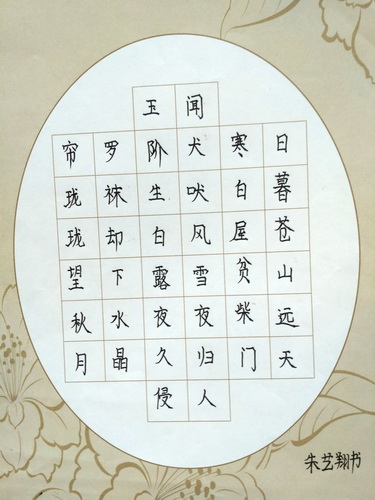 日暮苍山远天
寒白屋贫柴门
闻犬吠风雪夜归人
玉阶生白露夜久侵
罗袜却下水晶
帘珑珑望秋月
朱艺翔书